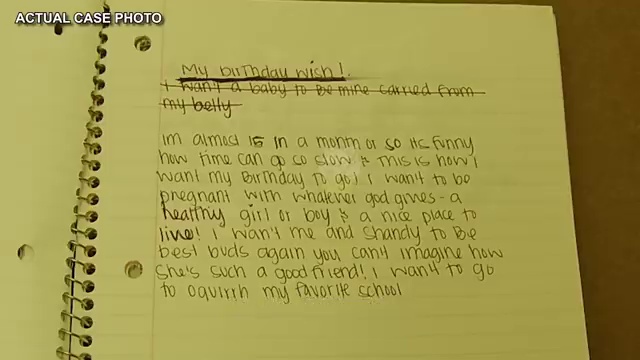 ACTUAL CASE PHOTO
My birthday wish!
I want a baby to be mine carried from
my belly
Im almost 15 in a month or so its funny
how time can go so slow & this is how I
want my Birthday to go! I want to be
pregnant with whatever god gives - a
healthy girl or boy & a nice place to
live! I want me and Shandy to be
best buds again you can't imagine how
she's such a good friend! I want to go
to oquirrh my favorite school